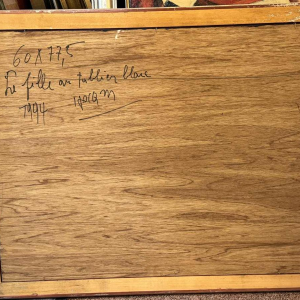 60 x 77,5
La fille au tablier blanc
1994